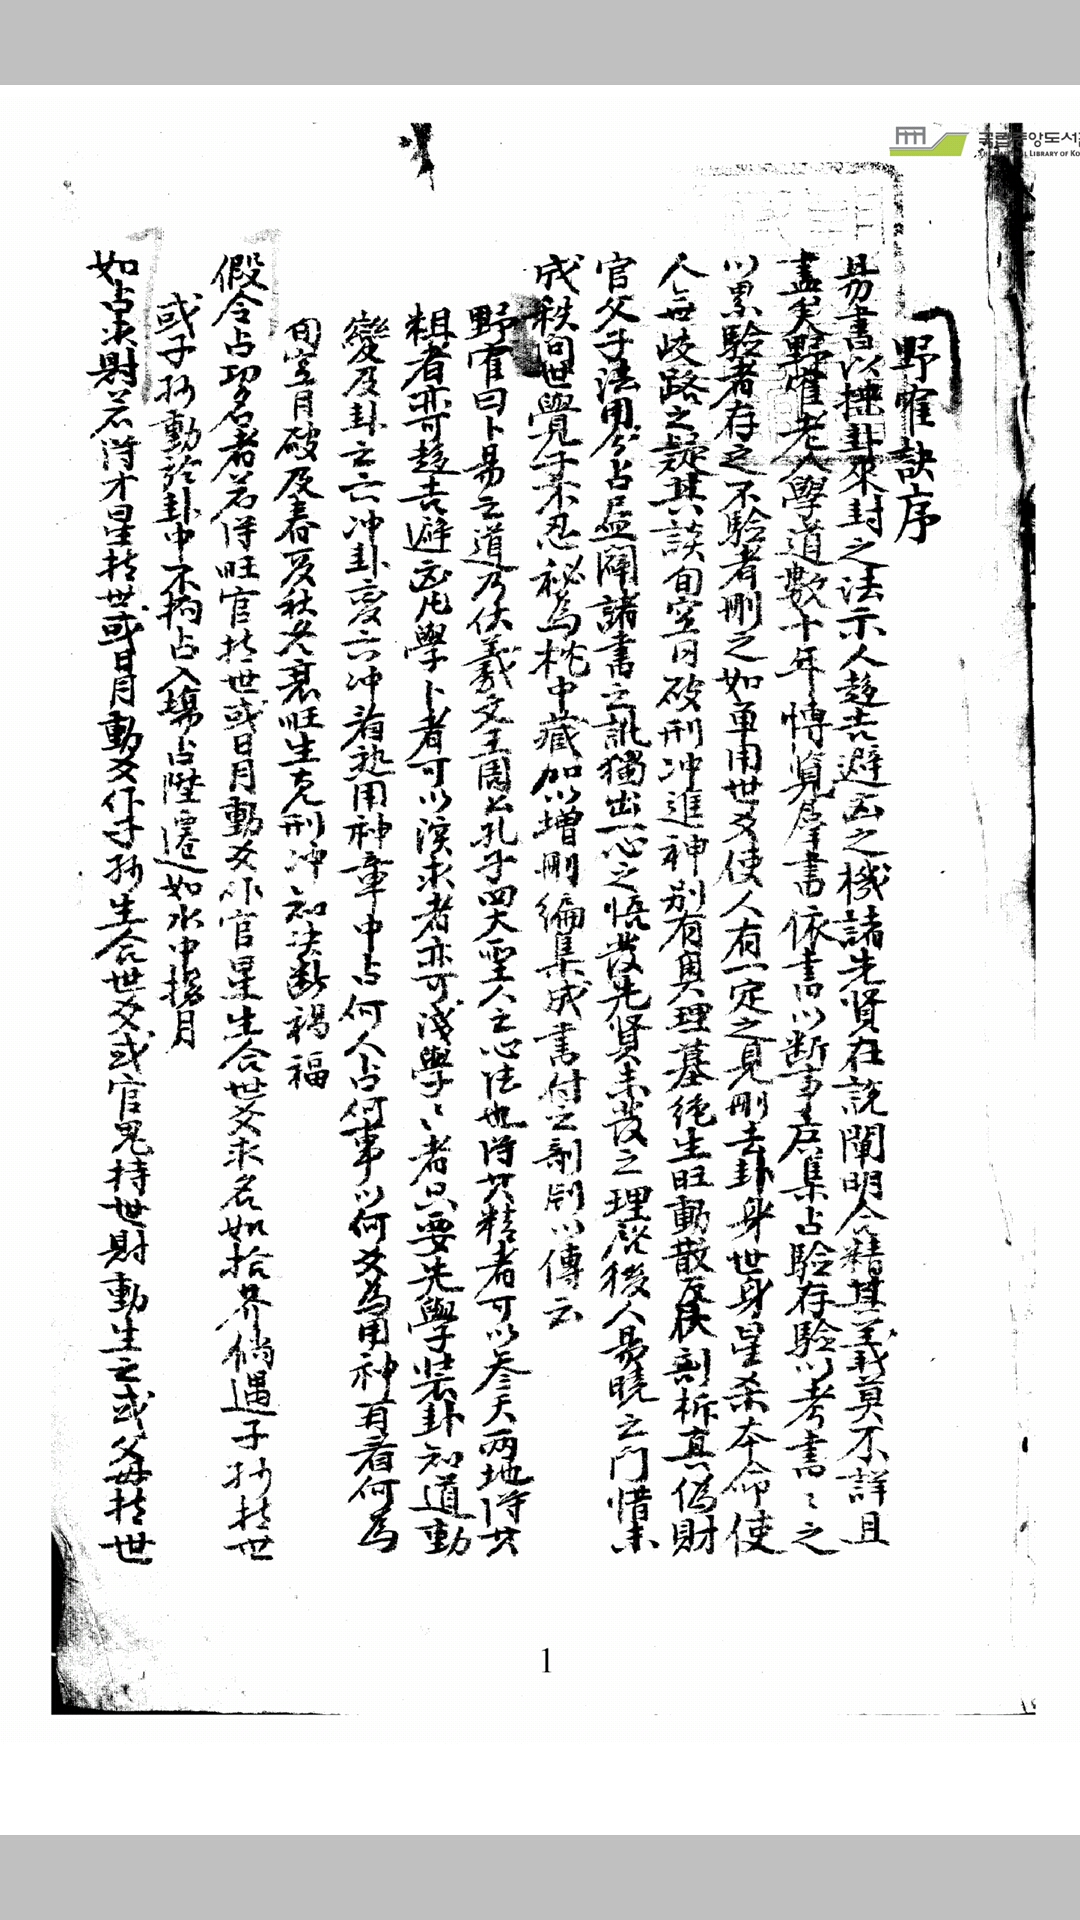 野寉訣序
易書以揲卦求卦之法示人趍吉避凶之機諸先賢在說闡明会精其義莫不詳且
盡矣野寉老人學道數十年愽覧群書依書以断事占集占驗存驗以考書〻之
以累驗者存之不驗者刪之如單用世爻使人有一定之見刪去卦身世身星杀本命使
人無歧路之疑其談旬空月破刑冲進神别有奧理墓绝生旺動散反伏剖柝真偽財
官父子法用分占层闢諸書之訛獨出一心之悟發先賢未發之理啓後人易曉之門惜未
成秩问世覺子不忍秘為枕中蔵加以增刪編集成書付之剞劂以傳云
野寉曰卜易之道乃伏羲文王周公孔子四大聖人之心法也得其精者可以叅天兩地得其
粗者亦可趍吉避凶凡學卜者可以深求者亦可淺學〻者只要先學装卦知道動
變及卦之六冲卦变六冲看熟用神章中占何人占何事以何爻為用神再看何為
旬空月破及春夏秋冬衰旺生克刑冲知决断禍福
假令占功名者若得旺官持世或日月動爻作官星生合世爻求名如拾芥倘遇子孙持世
或子孙動於卦中不拘占入塲占陞遷如水中撈月
如占求財若得才星持世或日月動爻作子孙生合世爻或官鬼持世財動生之或父母持世
1
국립중앙도서관
THE NATIONAL LIBRARY OF KO